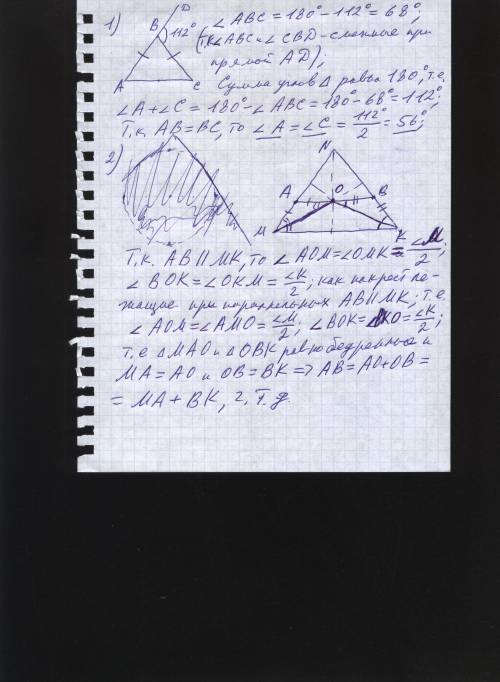 1)
D
B
112°
A
C
∠ABC = 180° - 112° = 68°,
(т.к. ∠ABC и ∠CBD - смежные при
прямой AD);
Сумма углов Δ равна 180°, т.е.
∠A + ∠C = 180° - ∠ABC = 180° - 68° = 112°;
Т.к. AB = BC, то ∠A = ∠C = 112°/2 = 56°;
2)
N
A
O
B
M
K
Т.к. AB || MK, то ∠AOM = ∠OMK = ∠M/2;
∠BOK = ∠OKM = ∠K/2; как накрест ле-
жащие при параллельных AB || MK; т.е.
∠AOM = ∠AMO = ∠M/2; ∠BOK = KO = ∠K/2;
т.е ΔMAO и ΔOBK равнобедренные и
MA = AO и OB = BK => AB = AO + OB =
= MA + BK, ч.т.д.